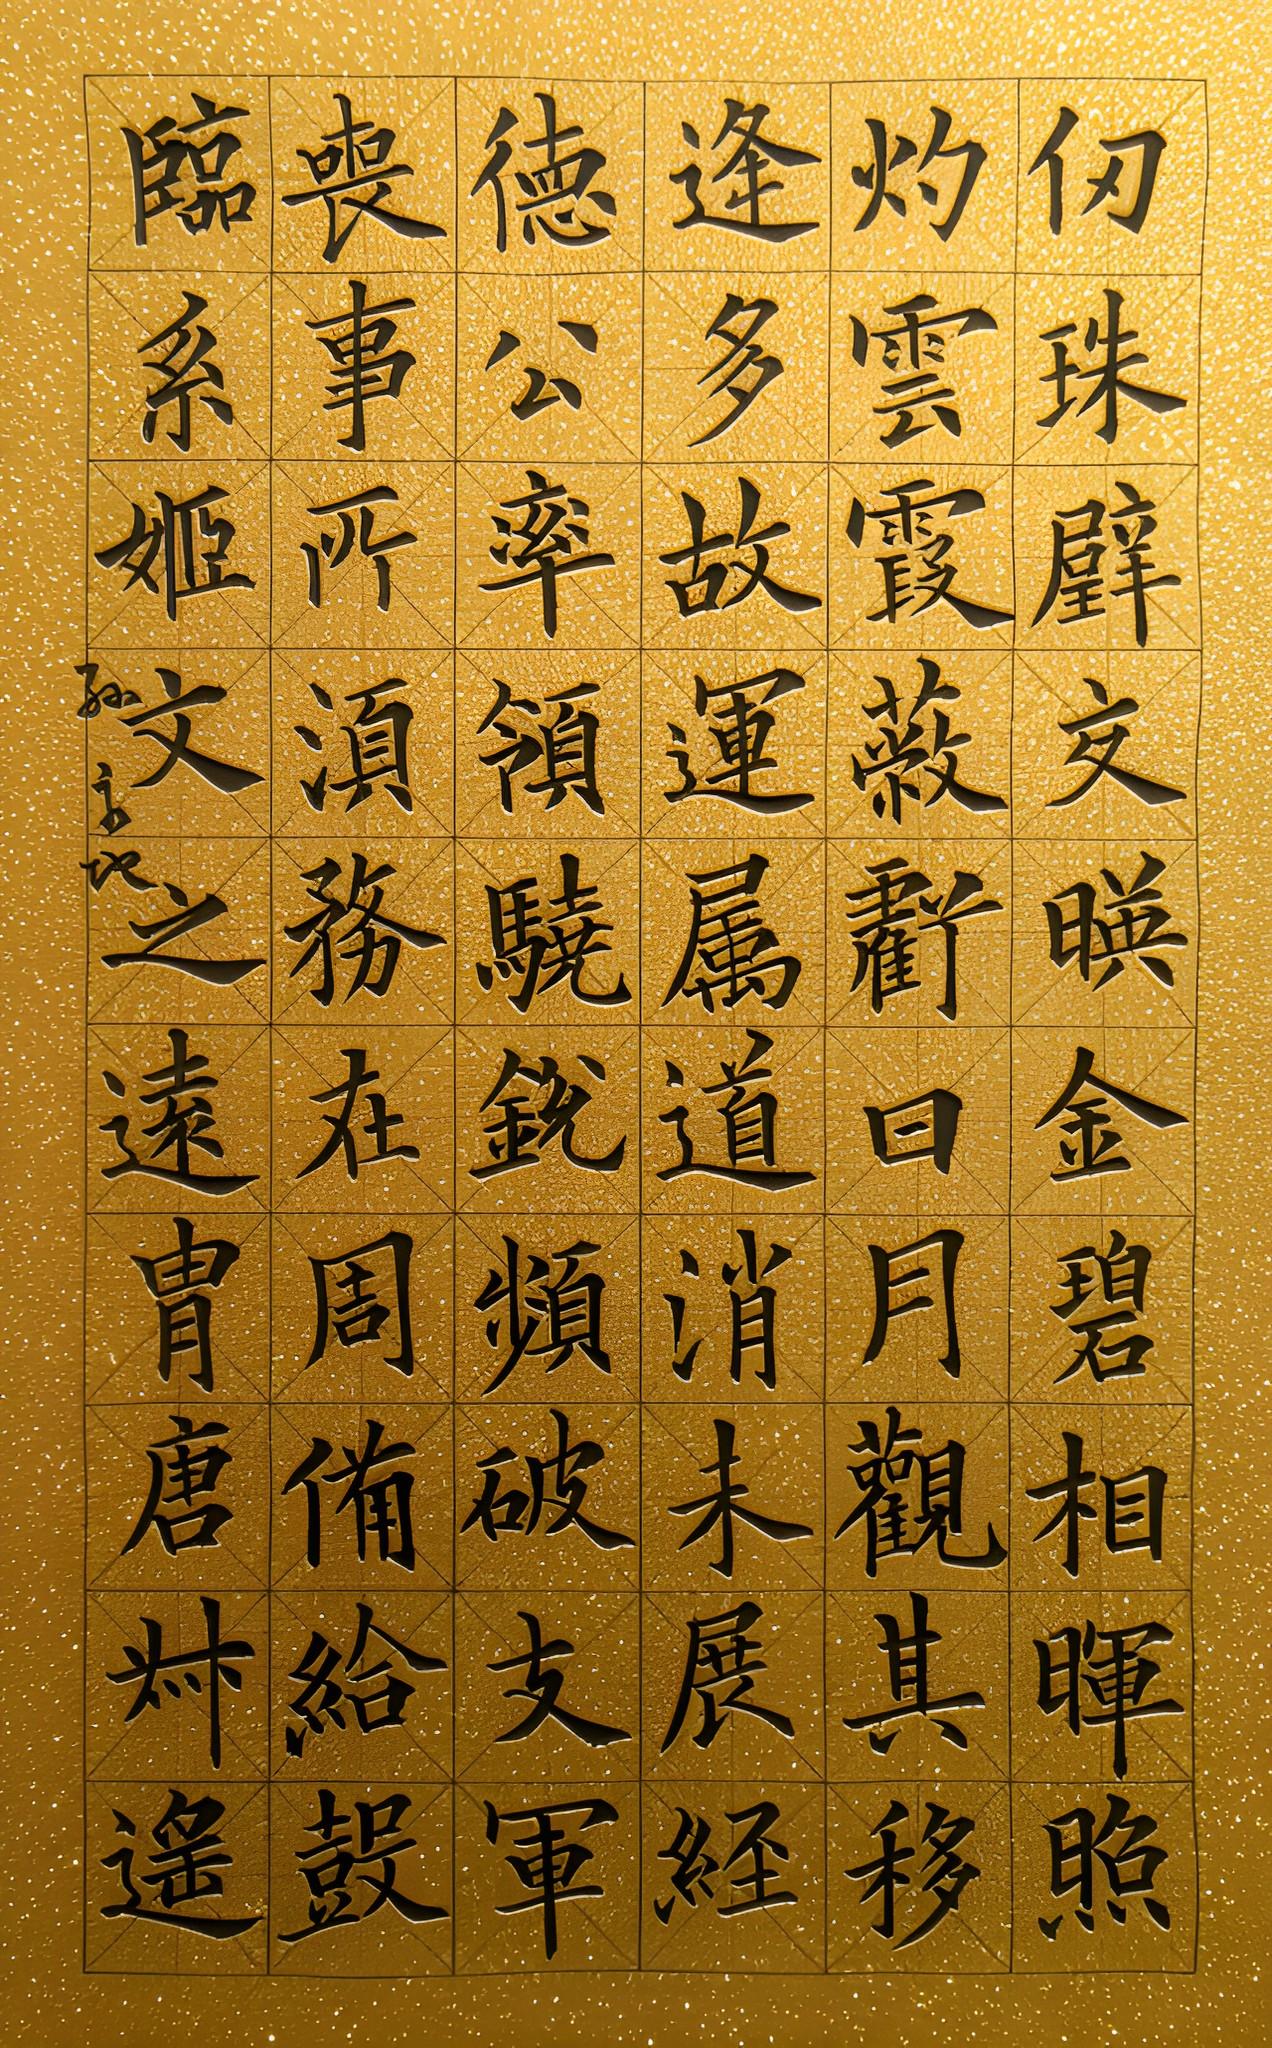 仞珠璧交暎金碧相暉照
灼雲霞蔽虧日月觀其移
逢多故運属道消未展経
德公率領驍銳頻破支軍
喪事所須務在周備給鼓
臨系姬文之遠冑唐叔遥